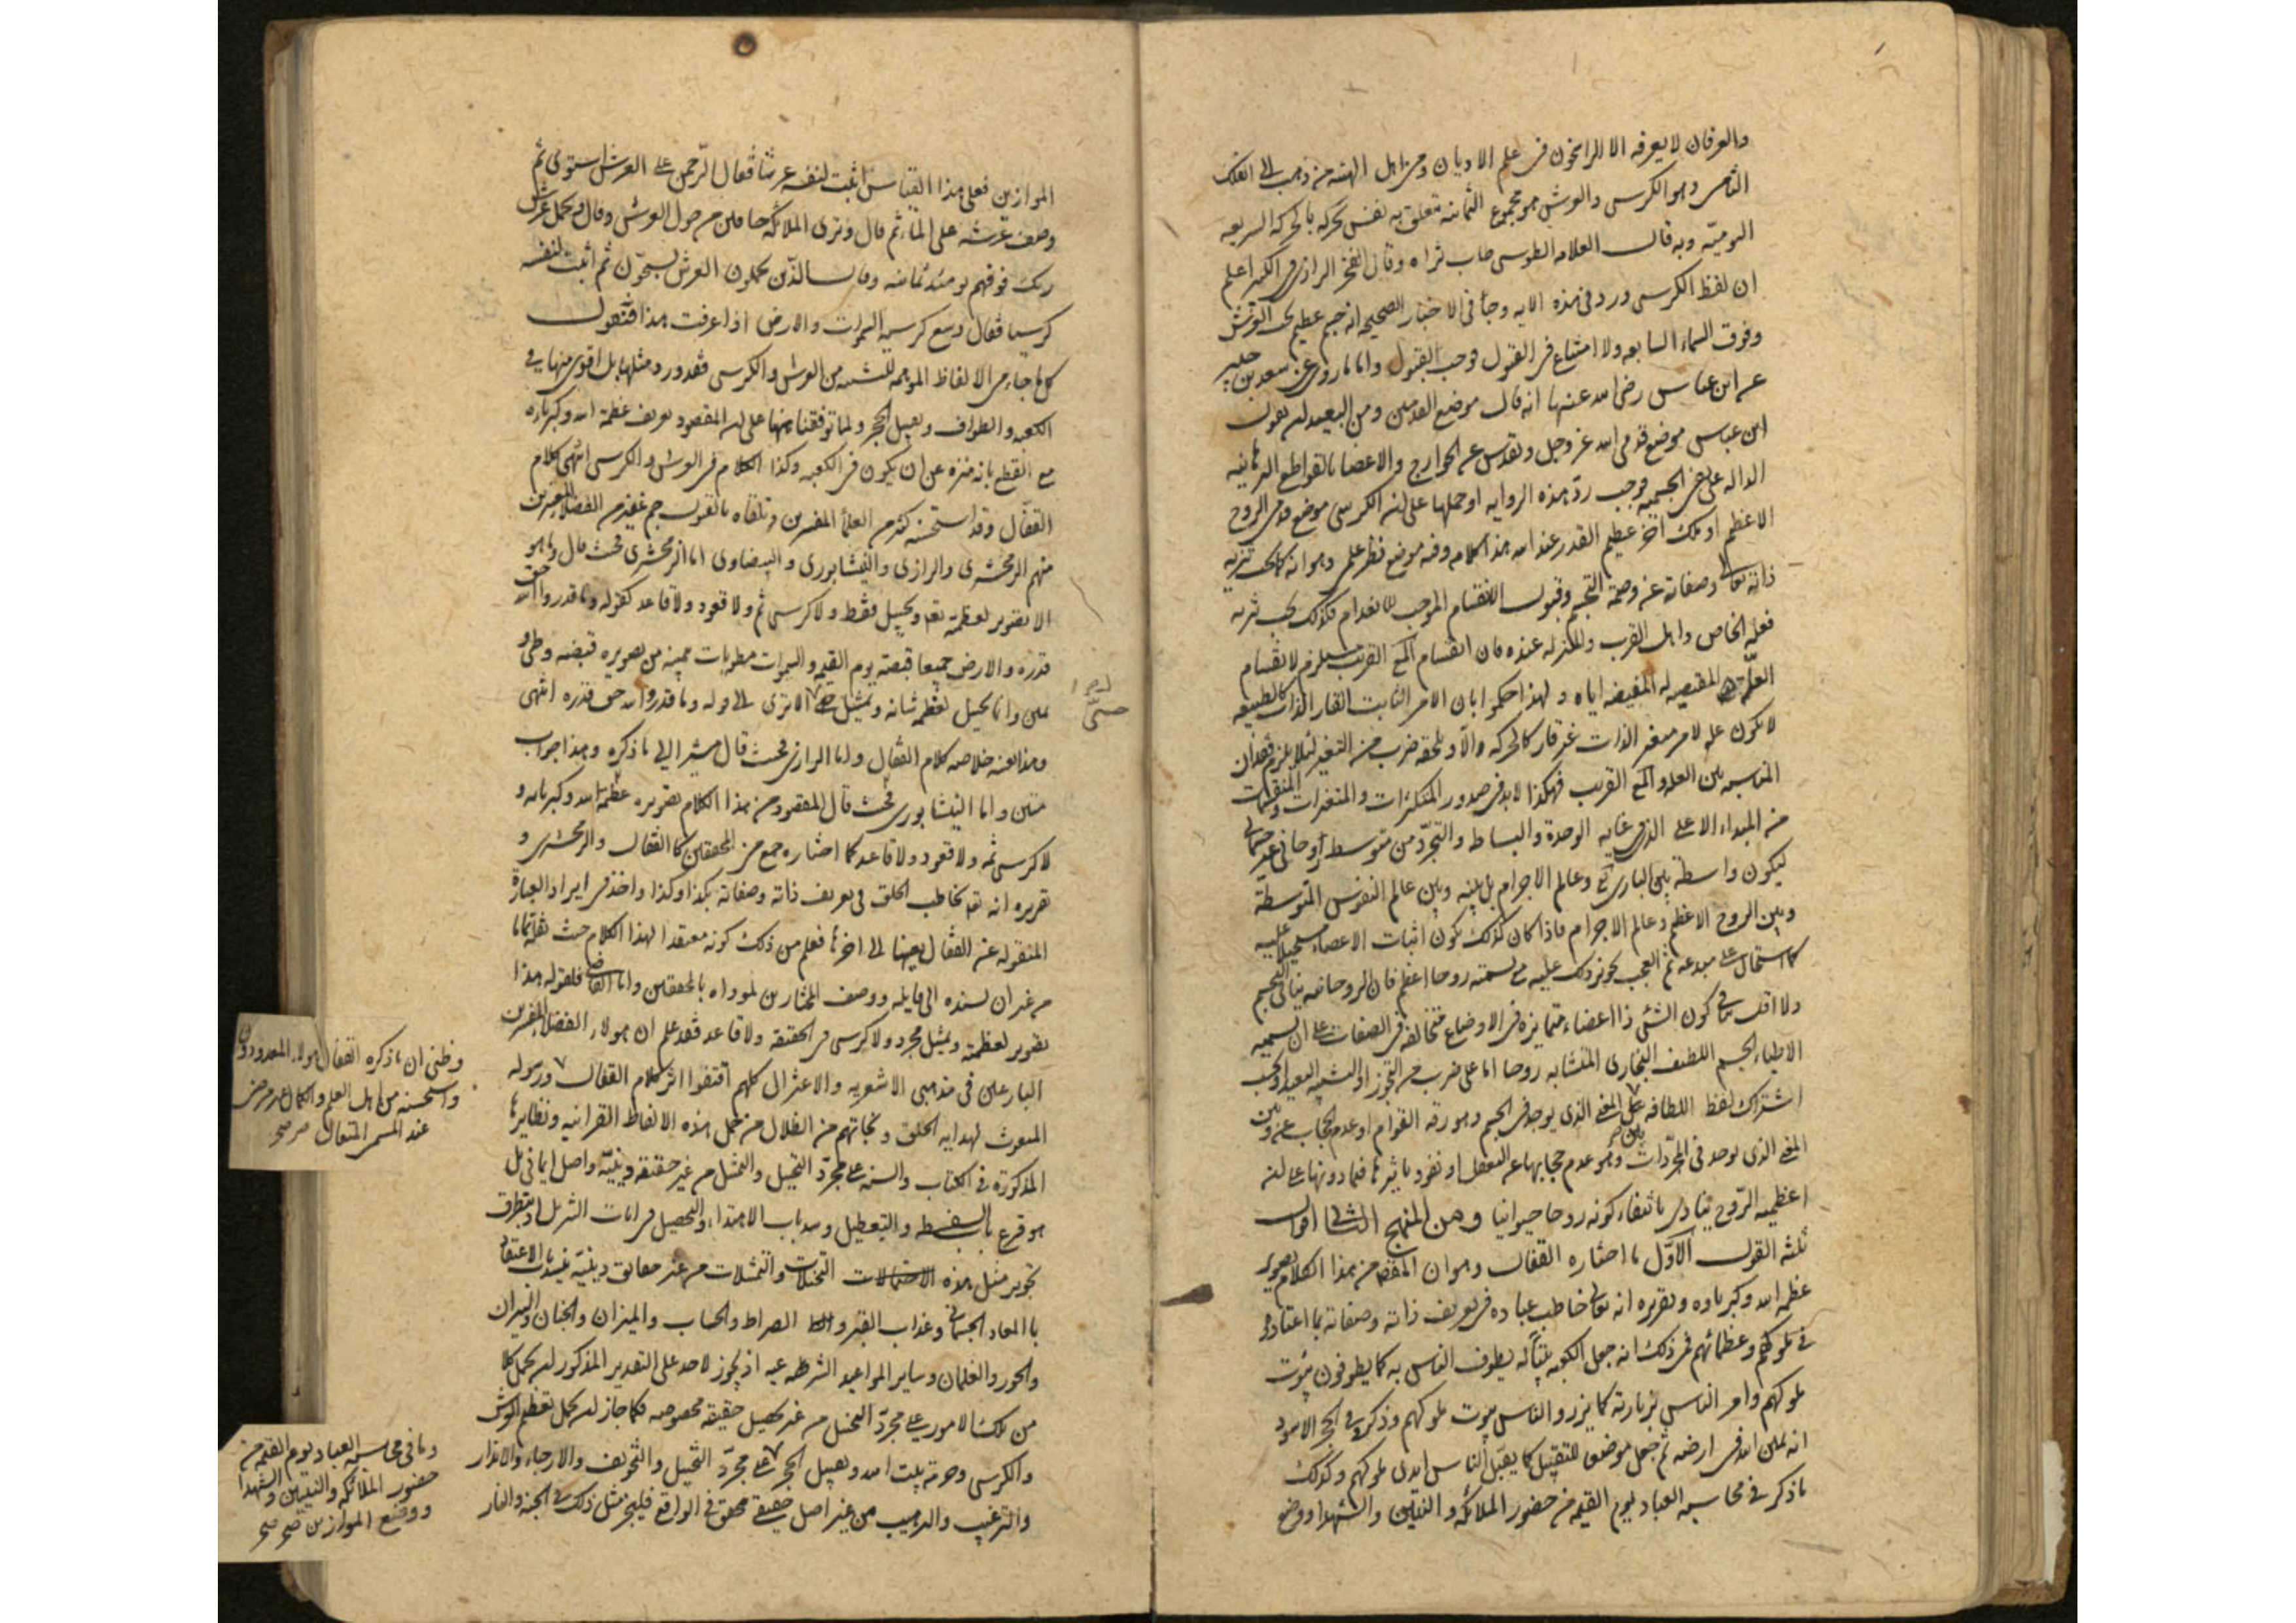 والعرفان لا يعرفه الا الراسخون فى علم الاديان ومن اهل الهيئه من ذهب الى الفلك
الثامن وهو الكرسى والعرش هو مجموع الثمانيه تتعلق به نفس تحركه بالحركه السريعه
اليوميّه وبه قال العلامه الطوسى طاب ثراه وقال الفخر الرازى فى الكبير اعلم
ان لفظ الكرسى ورد فى هذه الايه وجاء فى الاخبار الصحيحه انه جسم عظيم تحت العرش
وفوق السماء السابعه ولا امتناع فى القول فوجب القبول واما ما روى عن سعيد بن جبير
عن ابن عباس رضى الله عنهما انه قال موضع القدمين ومن البعيد ان يقول
ابن عباس موضع قدمى الله عز وجل وتقدس عن الجوارح والاعضاء بالقواطع البرهانيه
الداله على نفى الجسميه فوجب ردّ هذه الروايه او حملها على ان الكرسى موضع قدمى الروح
الاعظم او ملك آخر عظيم القدر عند الله هذا كلامه وفيه موضع نظر علمى وهو انه كما يجب تنزيه
ذاته تعالى وصفاته عن وصمة التجسم وقبول الانقسام الموجب للانعدام فكذلك يجب تنزيه
فعله الخاص واهل القرب والمنزله عنده فان انقسام المع القريب يستلزم لانقسام
العلّه المقتضيه له المفيضه اياه ولهذا حكموا بان الامر الثابت القار الذات كالطبيعه
لا تكون عله لامر متغير الذات غير قار كالحركه والّا ويلحقه ضرب من التغير لئلا يلزم فقدان
المناسبه بين العله والمع القريب فهكذا لابد فى صدور المتكثرات والمتغيرات والمنقسمات
من المبداء الاعلى الذى فى غايه الوحدة والبساطه والتجرّد من متوسط روحانى غير جسمانى
ليكون واسطة بين البارى تع وعالم الاجرام بل بينه وبين عالم النفوس المتوسطة
وبين الروح الاعظم وعالم الاجرام فاذا كان كذلك يكون اثبات الاعضاء مستحيلا عليه
كاستحاله على مبدعه ثم العجب تجويز ذلك عليه مع تسميته روحا اعظم فان الروحانيه ينافى التجسم
ولا اقل فى كون الشئ ذا اعضاء متمايزه فى الاوضاع متخالفه فى الصفات على ان تسميه
الاطباء الجسم اللطيف البخارى المتشابه روحا اما على ضرب من التجوز او التشبيه البعيد او بحسب
اشتراك لفظ اللطافه على المعنى الذى يوجد فى الجسم وهو رقه القوام او عدم الحجاب عنه وبين
المعنى الذى يوجد فى المجرّدات وهو عدم حجابها عن التعقل او نفوذ تاثيرها فيما دونها على ان
اعظميه الرّوح ينادى بانتفاء كونه روحا حيوانيا ومن المنهج الثانى اقوال
ثلثه القول الاوّل ما اختاره القفال وهو ان المقص من هذا الكلام تصوير
عظمه الله وكبرياءه وتقريره انه تعالى خاطب عباده فى تعريف ذاته وصفاته بما اعتادوه
فى ملوكهم وعظمائهم فمن ذلك انه جعل الكعبه بيتا له يطوف الناس به كما يطوفون بيوت
ملوكهم وامر الناس بزيارته كما يزرو الناس بيوت ملوكهم وذكر فى الحجر الاسود
انه يمين الله فى ارضه ثم جعل موضعا للتقبيل كما يقبّل الناس ايدى ملوكهم وكذلك
ما ذكر فى محاسبه العباد يوم القيمه من حضور الملائكه والنبيّين والشهدا ووضع
الموازين فعلى هذا القياس اثبت لنفسه عرشا فقال الرّحمن على العرش استوى ثم
وصف عرشه على الماء ثم قال وترى الملائكه حافين من حول العرش وقال ويحمل عرش
ربك فوقهم يومئذ ثمانيه وقال الذين يحملون العرش يسبحّون ثم اثبت لنفسه
كرسيا فقال وسع كرسيه السموات والارض اذا عرفت هذا فنقول
كل ما جاء من الالفاظ الموهمه للتشبيه من العرش والكرسى فقد ورد مثلها بل اقوى منها فى
الكعبه والطواف وتقبيل الحجر ولما توقفنا ههنا على ان المقصود تعريف عظمة الله وكبرياءه
مع القطع بانه منزه عن ان يكون فى الكعبه وكذا الكلام فى العرش والكرسى انتهى كلام
القفّال وقد استحسنه كثير من العلماء المفسرين وتلقاه بالقبول جم غفير من الفضلاء المعتبرين
منهم الزمخشرى والرازى والنيشابورى والبيضاوى اما الزمخشرى فحيث قال وما هو
الا تصوير لعظمته تع وتخييل فقط ولا كرسى ثم ولا قعود ولا قاعد كقوله وما قدروا الله حق
قدره والارض جميعا قبضته يوم القيمه والسموات مطويات بيمينه من تصوير قبضه وطى و
يمين وانما تخييل لعظمه شانه وتمثيل حتّى الا ترى الى قوله وما قدروا الله حق قدره انتهى
وهذا بعينه خلاصه كلام القفال واما الرازى فحيث قال مشيرا الى ما ذكره وهذا جواب
متين واما النيشابورى فحيث قال المقصود من هذا الكلام تصوير عظمة الله وكبرياءه و
لا كرسى ثمه ولا قعود ولا قاعد كما اختاره جمع من المحققين كالقفال والزمخشرى و
تقريره انه تع يخاطب الخلق فى تعريف ذاته وصفاته بكذا وكذا واخذ فى ايراد العبارة
المنقوله عن القفال بعينها الى اخرها فعلم من ذلك كونه معتقدا لهذا الكلام حيث نقله تماما
من غير ان يسنده الى قايله ووصف المختارين لمؤداه بالمحققين واما القاضى فلقوله هذا
تصوير لعظمته وتمثيل مجرد ولا كرسى فى الحقيقة ولا قاعد فقد علم ان هولاء الفضلاء المفسرين
البارعين فى مذهبى الاشعريه والاعتزال كلهم اقتفوا اثر كلام القفال
المبعوث لهدايه الخلق ونجاتهم من الضلال من حمل هذه الالفاظ القرانيه ونظايرها
المذكورة فى الكتاب والسنه على مجرّد التخييل والتمثيل من غير حقيقة دينيّه واصل ايمانى بل
هو قرع باب السفسطه والتعطيل وسد باب الاهتداء والتحصيل فى ايات التنزيل اذ يتطرق
تجويز مثل هذه الاحتمالات التخيلات والتمثيلات من غير حقايق دينيّة ينسد باب الاعتقاد
با المعاد الجسمانى وعذاب القبر والصراط والحساب والميزان والجنان والنيران
والحور والغلمان وساير المواعيد الشرعيه اذ يجوز لاحد على التقدير المذكور ان يحمل كلا
من تلك الامور على مجرّد التخييل من غير تحصيل حقيقة مخصوصه فكما جاز ان يحمل تعظيم العرش
والكرسى وحرمة بيت الله وتقبيل الحجر على مجرّد التخييل والتخويف والارجاء والانذار
والترغيب والترهيب من غير اصل حقيقى محقق فى الواقع فليجز مثل ذلك فى الجنه والنار
حتّى
وظنى ان ما ذكره القفال هولاء المعدودون
واستحسنه من اهل العلم والكمال غير مرضى
عند المتعال
وما فى محاسبه العباد يوم القيمه من
حضور الملائكه والنبيّين والشهدا
ووضع الموازين صح صح